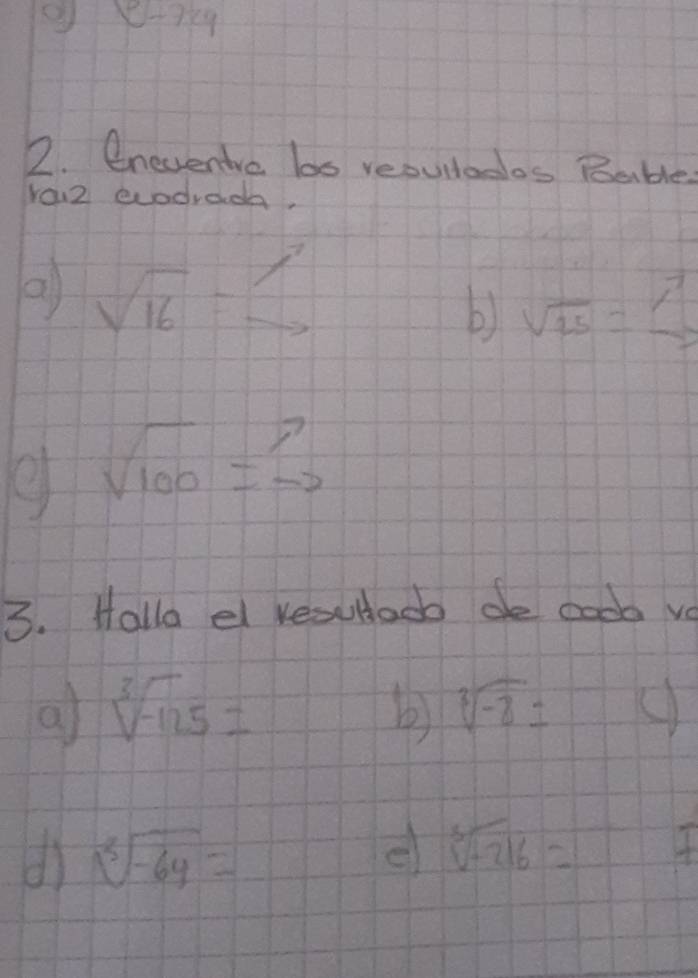 2. Encuentra los resultados Posible
raiz cuadrada.
a) √16 =
b) √25 =
c) √100 =
3. Halla el resultado de cada
a) ∛-125 =
b) ∛-8 =
c)
d) ∛-64 =
e) ∛-216 =